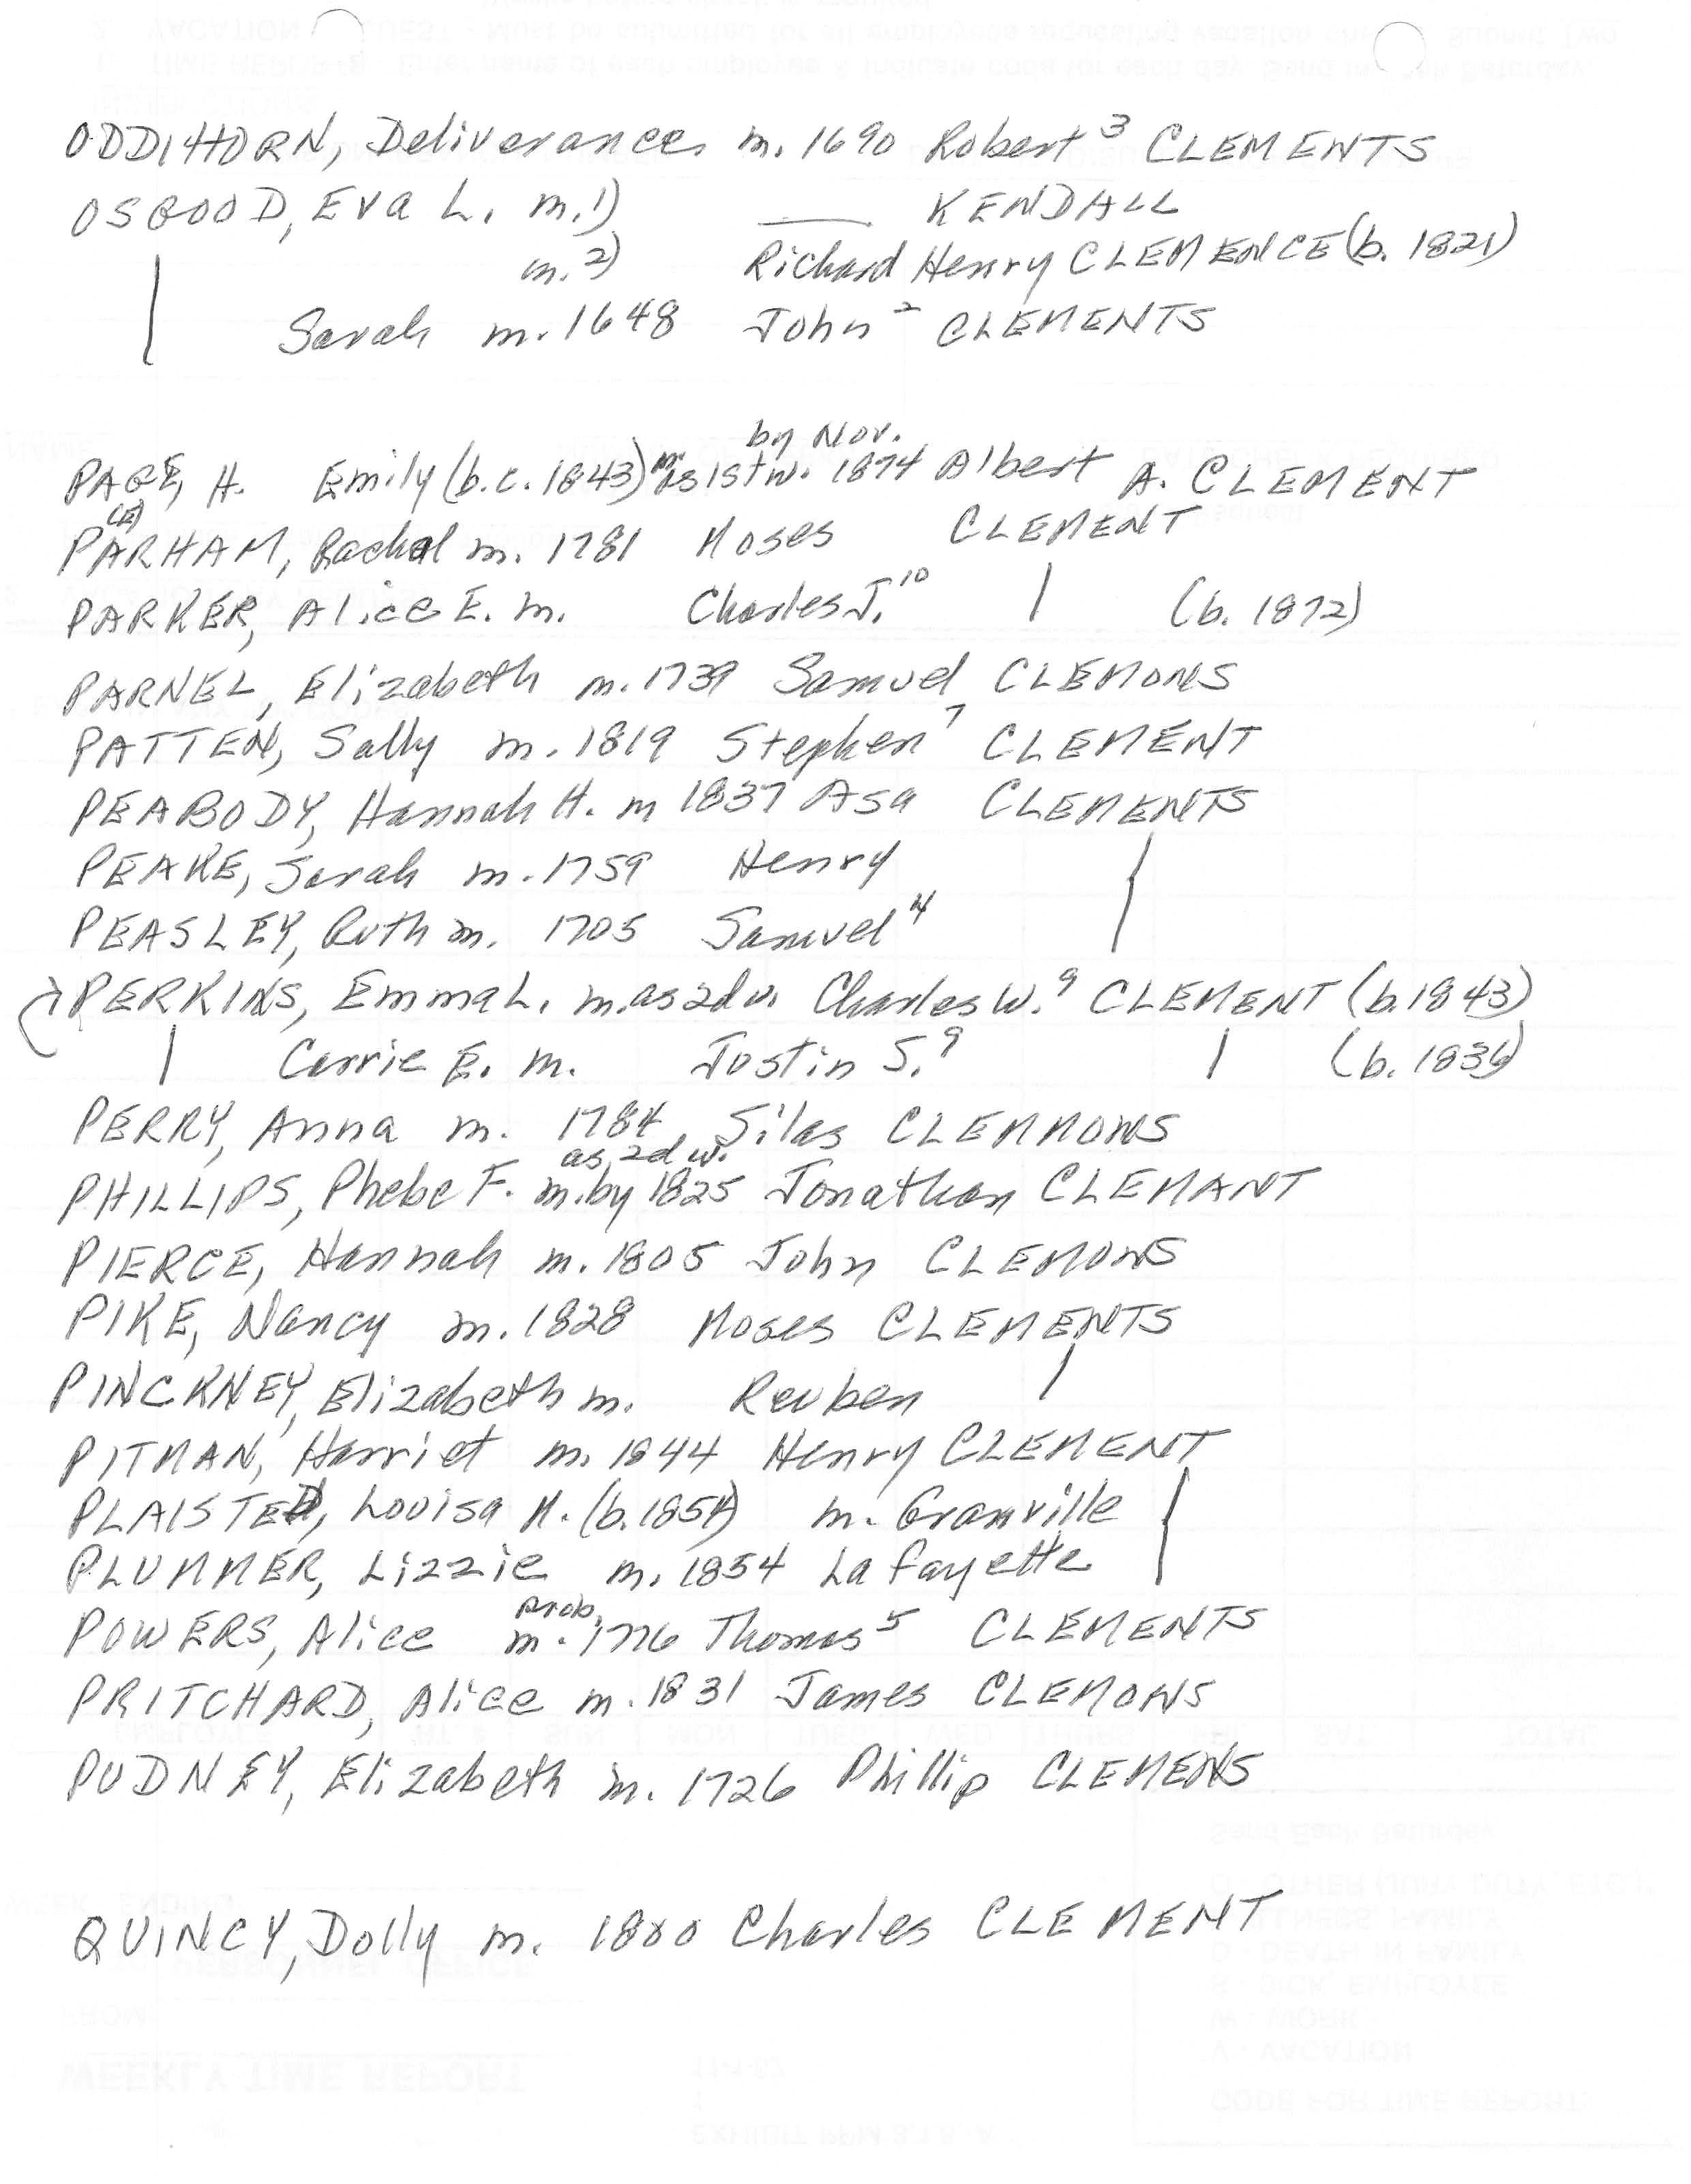 ODDIHORN, Deliverance m. 1690 Robert³ CLEMENTS
OSGOOD, Eva L. m. 1) ____ KENDALL
m. 2) Richard Henry CLEMENCE (b. 1821)
| Sarah m. 1648 John² CLEMENTS
by Nov.
PAGE, H. Emily (b.c. 1843) m. as 1st w. 1874 Albert A. CLEMENT
(E)
PARHAM, Rachal m. 1781 Moses CLEMENT
PARKER, Alice E. m. Charles J.¹⁰ | (b. 1872)
PARNEL, Elizabeth m. 1739 Samuel CLEMONS
PATTEN, Sally m. 1819 Stephen⁷ CLEMENT
PEABODY, Hannah H. m 1837 Asa CLEMENTS
PEAKE, Sarah m. 1759 Henry |
PEASLEY, Ruth m. 1705 Samuel⁴ |
PERKINS, Emma L. m. as 2d w. Charles W.⁹ CLEMENT (b. 1843)
| Carrie E. m. Justin S.⁹ | (b. 1836)
PERRY, Anna m. 1784 Silas CLEMMONS
as 2d w.
PHILLIPS, Phebe F. m. by 1825 Jonathan CLEMANT
PIERCE, Hannah m. 1805 John CLEMONS
PIKE, Nancy m. 1828 Moses CLEMENTS
PINCKNEY, Elizabeth m. Reuben |
PITMAN, Harriet m. 1844 Henry CLEMENT
PLAISTED, Louisa M. (b. 1854) m. Granville |
PLUMMER, Lizzie m. 1854 Lafayette |
prob.
POWERS, Alice m. 1776 Thomas⁵ CLEMENTS
PRITCHARD, Alice m. 1831 James CLEMONS
PUDNEY, Elizabeth m. 1726 Phillip CLEMENS
QUINCY, Dolly m. 1800 Charles CLEMENT